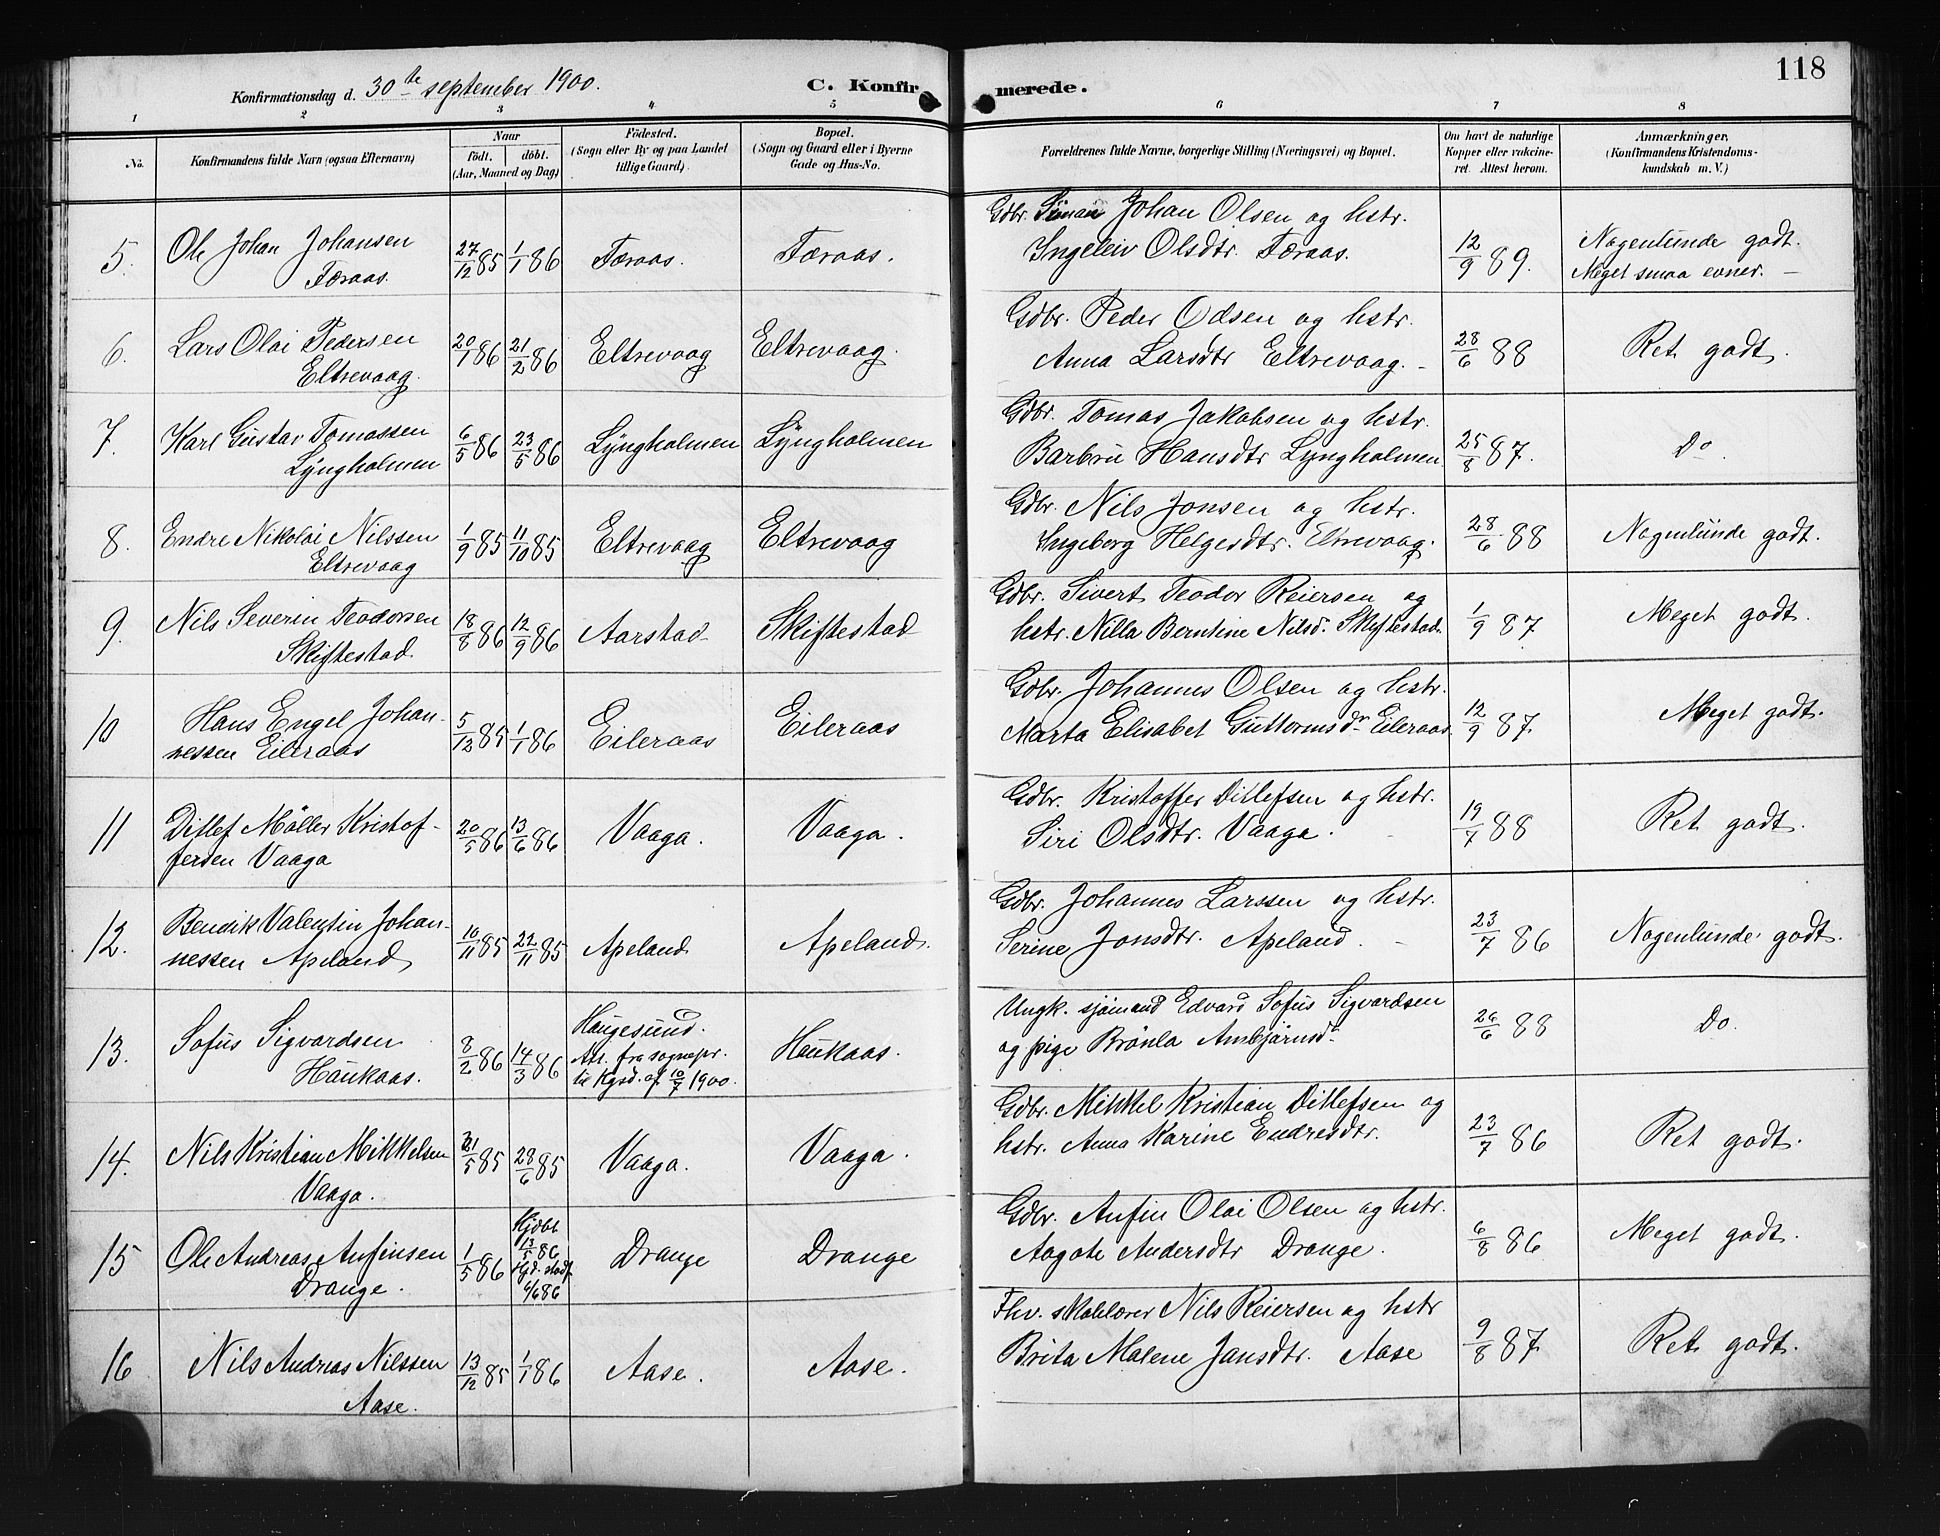 118
Konfirmationsdag d. 30te september 1900.
C. Konfirmerede.
1 2 3 4 5 6 7 8
No.
Konfirmandens fulde Navn (ogsaa Efternavn)
Naar
født. døbt.
(Aar, Maaned og Dag)
Fødested.
(Sogn eller By og paa Landet
tillige Gaard).
Bopæl.
(Sogn og Gaard eller i Byerne
Gade og Hus-No.
Forældrenes fulde Navne, borgerlige Stilling (Næringsvei) og Bopæl.
Om havt de naturlige
Kopper eller vakcine-
ret. Attest herom.
Anmærkninger,
(Konfirmandens Kristendoms-
kundskab m. V.)
5. Ole Johan Johansen
Færaas.
27/12 85 1/1 86 Færaas. Færaas.
Gdbr. Simon Johan Olsen og hstr.
Ingeleiv Olsdtr. Færaas.
12/9 89.
Nogenlunde godt.
Meget smaa evner. —
6. Lars Olai Pedersen
Eltrevaag.
20/1 86 21/2 86 Eltrevaag Eltrevaag.
Gdbr. Peder Odsen og hstr.
Anna Larsdtr Eltrevaag. -
28/6 88
Ret godt.
7. Karl Gustav Tomassen
Lyngholmen
6/5 86 23/5 86 Lyngholmen Lyngholmen
Gdbr. Tomas Jakobsen og hstr.
Barbru Hansdtr Lyngholmen
25/8 87.
Do.
8. Endre Nikolai Nilssen
Eltrevaag
1/9 85 11/10 85 Eltrevaag Eltrevaag
Gdbr. Nils Jonsen og hstr.
Ingeborg Helgesdtr. Eltrevaag.
28/6 88
Nogenlunde godt.
9. Nils Severin Teodorsen
Skiftestad.
18/8 86 12/9 86 Aarstad Skiftestad
Gdbr. Sivert Teodor Reiersen og
hstr. Nilla Berntine Nilsd. Skiftestad.
1/9 87
Meget godt.
10 Hans Engel Johan-
nessen Eileraas
5/12 85 1/1 86 Eileraas Eileraas
Gdbr. Johannes Olsen og hstr.
Marta Elisabet Guttormsdr Eileraas
12/9 87.
Meget godt.
11 Ditlef Møller Kristof-
fersen Vaaga
20/5 86 13/6 86 Vaaga. Vaaga.
Gdbr. Kristoffer Ditlefsen og hstr.
Siri Olsdtr. Vaaga.
19/7 88
Ret godt.
12. Bendik Valentin Johan-
nessen Apeland
10/11 85 22/11 85 Apeland Apeland.
Gdbr. Johannes Larssen og hstr.
Serine Jonsdtr. Apeland. -
23/7 86
Nogenlunde godt.
13. Sofus Sigvardsen
Haukaas.
8/2 86 14/3 86 Haugesund.
Att. fra sognepr.
til Kgsd. af 10/7 1900.
Haukaas.
Ungk. sjømand Edvard Sofus Sigvardsen
og pige Brønla Ambjørnsdr
26/6 88
Do.
14. Nils Kristian Mikkelsen
Vaaga.
31/5 85 28/6 85 Vaaga. Vaaga.
Gdbr. Mikkel Kristian Ditlefsen og
hstr. Anna Karine Endresdtr.
23/7 86
Ret godt.
15 Ole Andreas Anfinsen
Drange.
1/5 86 Hjdbt
13/5 86
stadf.
6/6 86
Drange Drange
Gdbr. Anfin Olai Olsen og hstr.
Aagote Andersdtr Drange.
6/8 86
Meget godt.
16 Nils Andreas Nilssen
Aase.
13/12 85 1/1 86 Aase. Aase.
Fhv. skolelærer Nils Reiersen og hstr
Brita Malene Jansdtr. Aase
9/8 87
Ret godt.